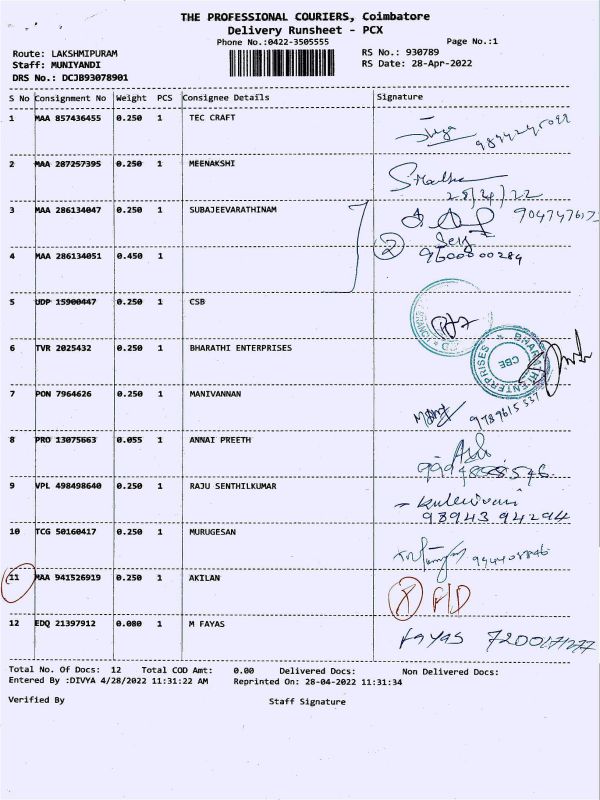 THE PROFESSIONAL COURIERS, Coimbatore
Delivery Runsheet - PCX
Phone No.:0422-3505555 Page No.:1
Route: LAKSHMIPURAM RS No.: 930789
Staff: MUNIYANDI RS Date: 28-Apr-2022
DRS No.: DCJB93078901
S No Consignment No Weight PCS Consignee Details Signature
1 MAA 857436455 0.250 1 TEC CRAFT
2 MAA 287257395 0.250 1 MEENAKSHI
28/4/22
3 MAA 286134047 0.250 1 SUBAJEEVARATHINAM
4 MAA 286134051 0.450 1 2 9600000284
5 UDP 15900447 0.250 1 CSB
6 TVR 2025432 0.250 1 BHARATHI ENTERPRISES
BHARATHI ENTERPRISES CBE
7 PON 7964626 0.250 1 MANIVANNAN 9789615537
8 PRO 13075663 0.055 1 ANNAI PREETH
9 VPL 498498640 0.250 1 RAJU SENTHILKUMAR
98943 94294
10 TCG 50160417 0.250 1 MURUGESAN
11 MAA 941526919 0.250 1 AKILAN
12 EDQ 21397912 0.080 1 M FAYAS
Fayas 7200171277
Total No. Of Docs: 12 Total COD Amt: 0.00 Delivered Docs: Non Delivered Docs:
Entered By :DIVYA 4/28/2022 11:31:22 AM Reprinted On: 28-04-2022 11:31:34
Verified By Staff Signature